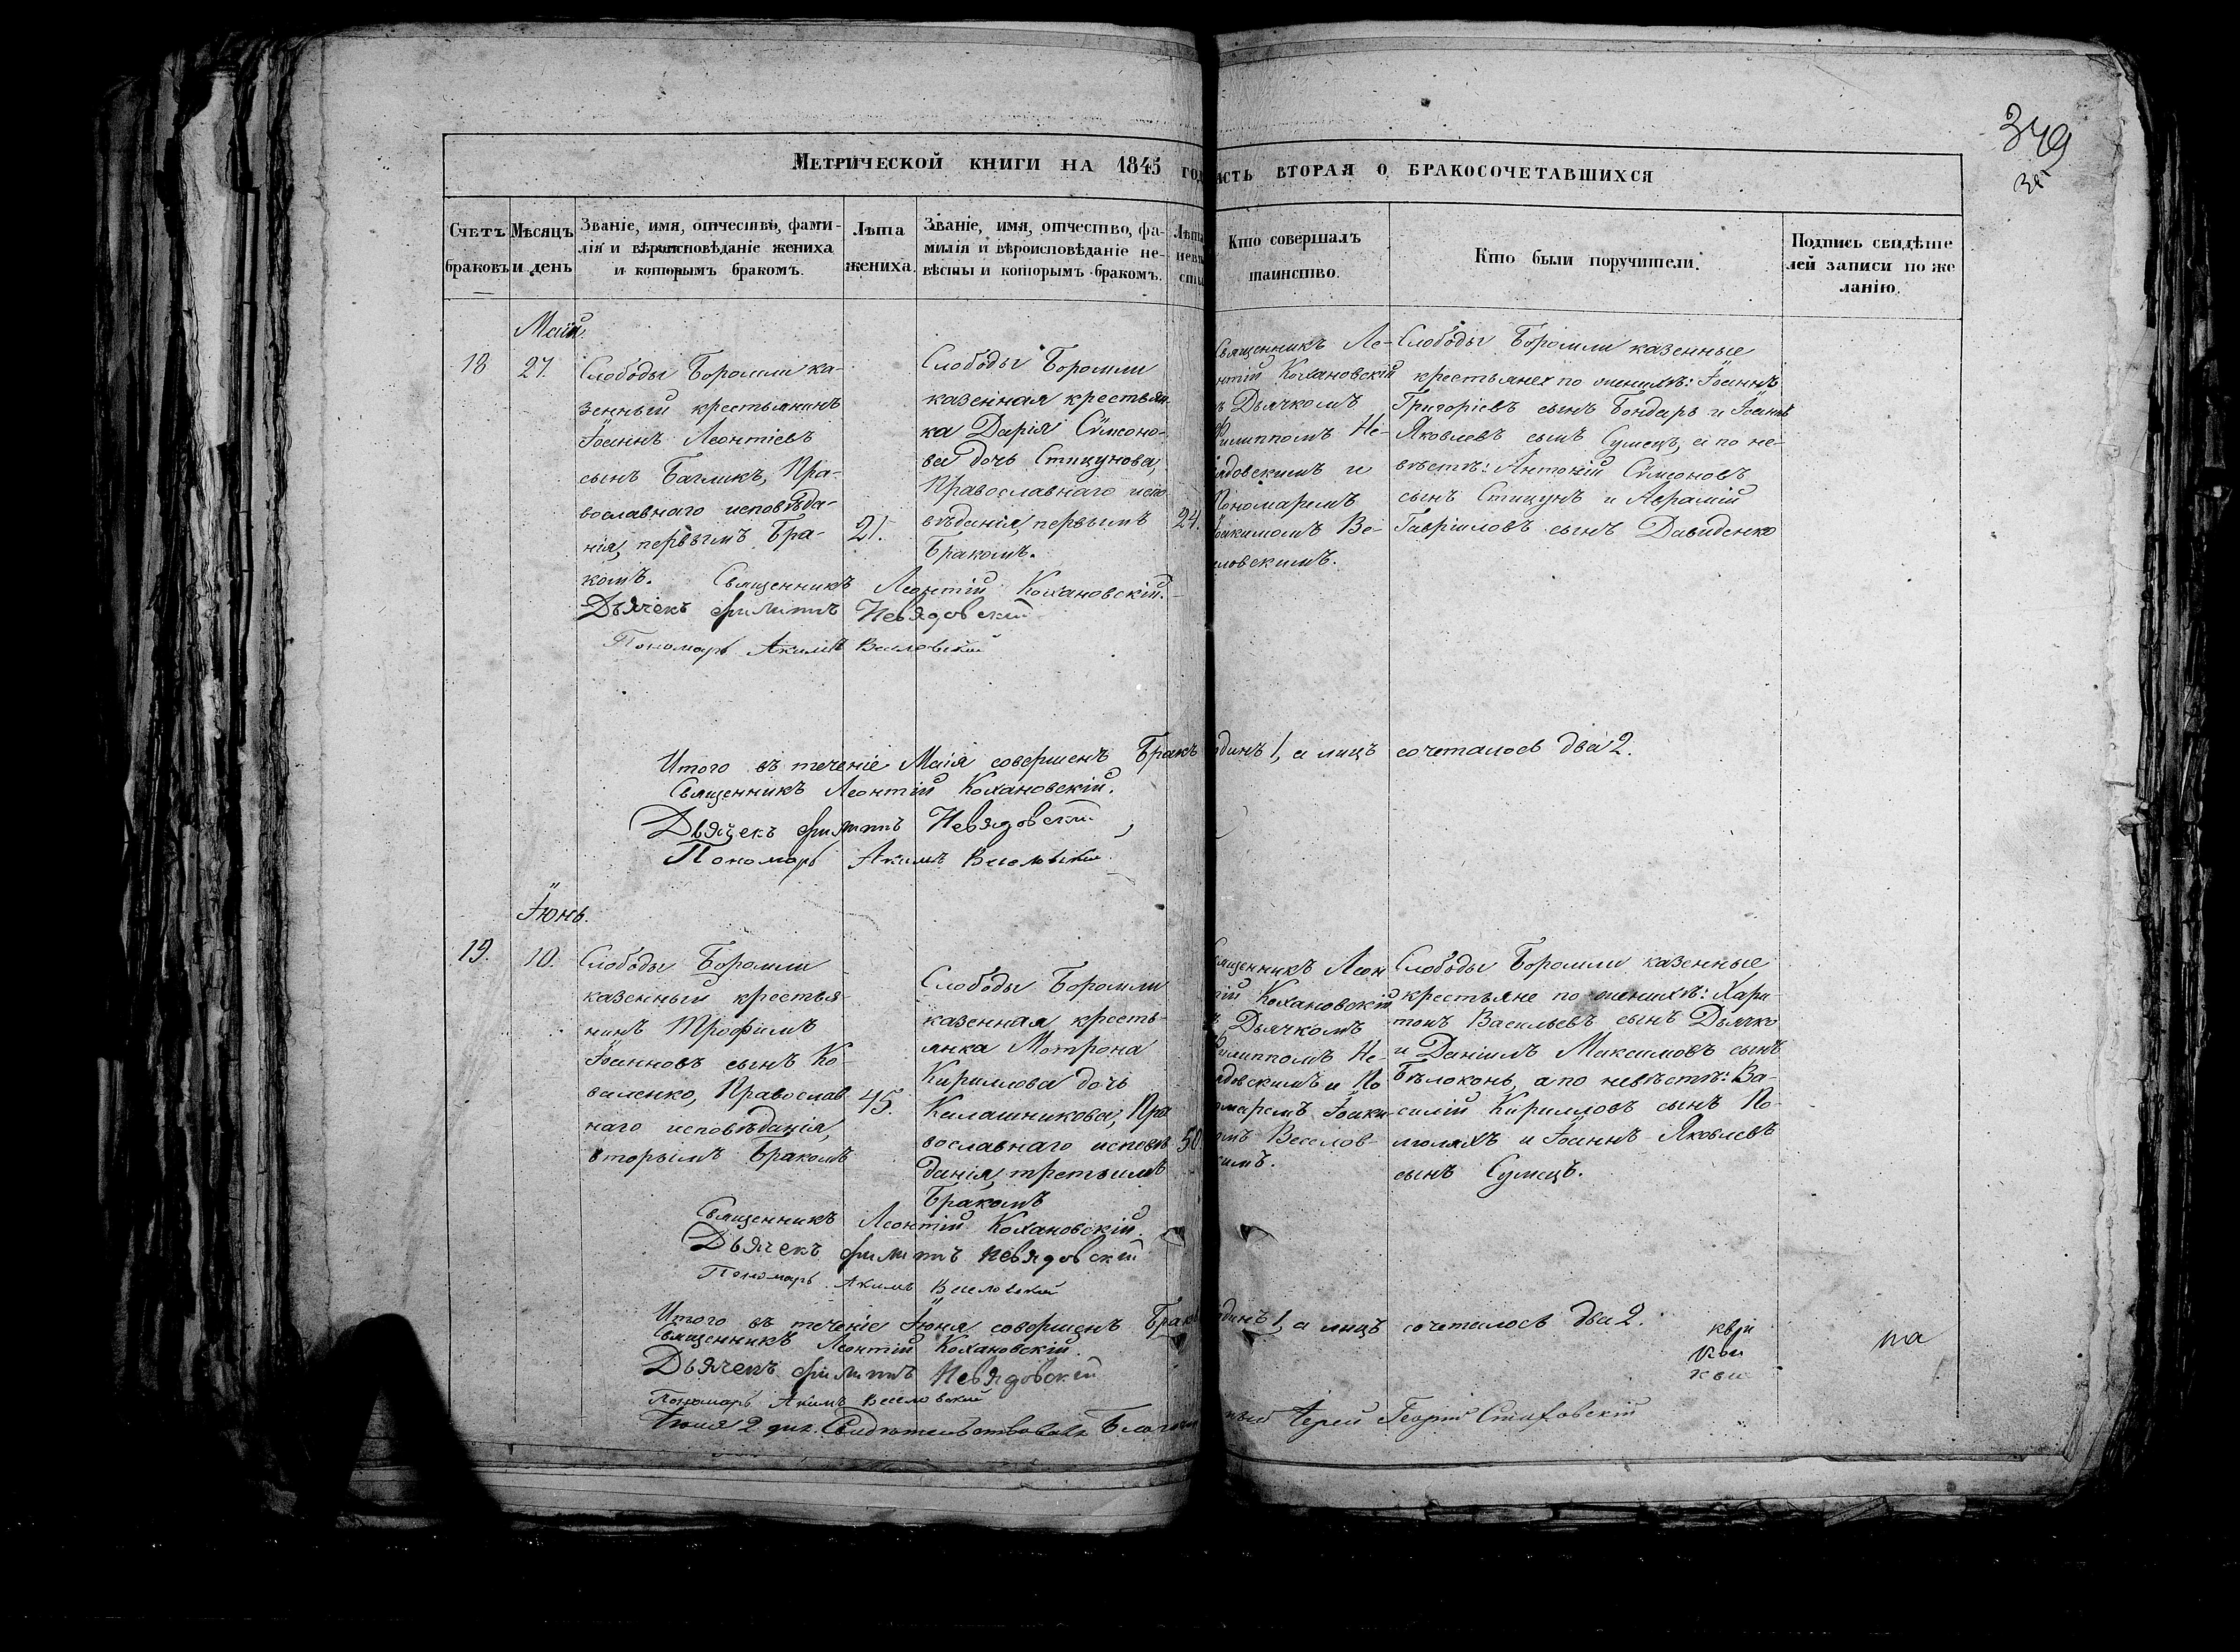 349
Метрической книги на 1845 год
асть вторая о бракосочетавшихся
Счетъ браковъ
Мѣсяцъ и день
Званіе, имя, отчество, фами-
лія и вѣроисповѣданіе жениха
и которымъ бракомъ.
Лѣта
жениха.
Званіе, имя, отчество, фа-
милія и вѣроисповѣданіе не-
вѣсты и которымъ бракомъ.
Лѣта
невѣ
сты
Кто совершалъ
таинство.
Кто были поручители.
Подпись свидѣте
лей записи по же
ланію.
Маій
18
27.
Слободы Боромли ка-
зенный крестьянинъ
Іоаннъ Леонтіевъ
сынъ Багликъ, Пра-
вославнаго исповѣда-
нія, первымъ Бра-
комъ.
21.
Слободы Боромли
казенная крестьян-
ка Дарія Сѵмеоно-
ва дочь Стицунова,
Православнаго испо
вѣданія, первымъ
Бракомъ.
24.
Священникъ Ле-
нтій Кохановскій
ъ Дьячкомъ
Филиппомъ Не-
ядовскимъ и
Пономаремъ
Іоакимомъ Ве-
еловскимъ.
Слободы Боромли казенные
крестьянех по женихѣ: Іоаннъ
Григоріевъ сынъ Бондарь и Іоаннъ
Яковлевъ сынъ Сумецъ, а по не-
вѣстѣ: Антоній Сѵмеоновъ
сынъ Стицунъ и Аврамій
Гавріиловъ сынъ Давиденко
Священникъ Леонтій Кохановскій.
Дьячекъ Филиппъ Невядовскій
Пономарь Акимъ Веселовскій
Итого въ теченіе Маія совершенъ Бракъ одинъ 1, а лицъ сочеталось два 2.
Священникъ Леонтій Кохановскій.
Дьячекъ Филиппъ Невядовскій
Пономарь Акимъ Веселовскій.
Іюнь.
19.
10.
Слободы Боромли
казенный крестья-
нинъ Трофимъ
Іоанновъ сынъ Ко-
валенко, Православ
наго исповѣданія,
вторымъ Бракомъ
45.
Слободы Боромли
казенная кресть-
янка Мотрона
Кириллова дочь
Калашникова, Пра
вославнаго исповѣ
данія, третьимъ
Бракомъ
50
священникъ Леон
тій Кохановскій
ъ Дьячкомъ
Филиппомъ Не-
ядовскимъ и По
омаремъ Іоаки-
омъ Веселов-
кимъ.
Слободы Боромли казенные
крестьяне по женихѣ: Хари-
тонъ Васильевъ сынъ Дьячко
и Даніилъ Максимовъ сынъ
Бѣлоконь, а по невѣстѣ: Ва-
силій Кирилловъ сынъ По-
моляхъ и Іоаннъ Яковлевъ
сынъ Сумецъ.
Священникъ Леонтій Кохановскій.
Дьячекъ Филиппъ Невядовскій
Пономарь Акимъ Веселовскій
Итого въ теченіе Іюня совершенъ Бракъ одинъ 1, а лицъ сочеталось два 2.
Священникъ Леонтій Кохановскій.
Дьячекъ Филиппъ Невядовскій
Пономарь Акимъ Веселовскій
Іюля 2 дня. Свидѣтельствовалъ Благочин ный Іерей Георгій